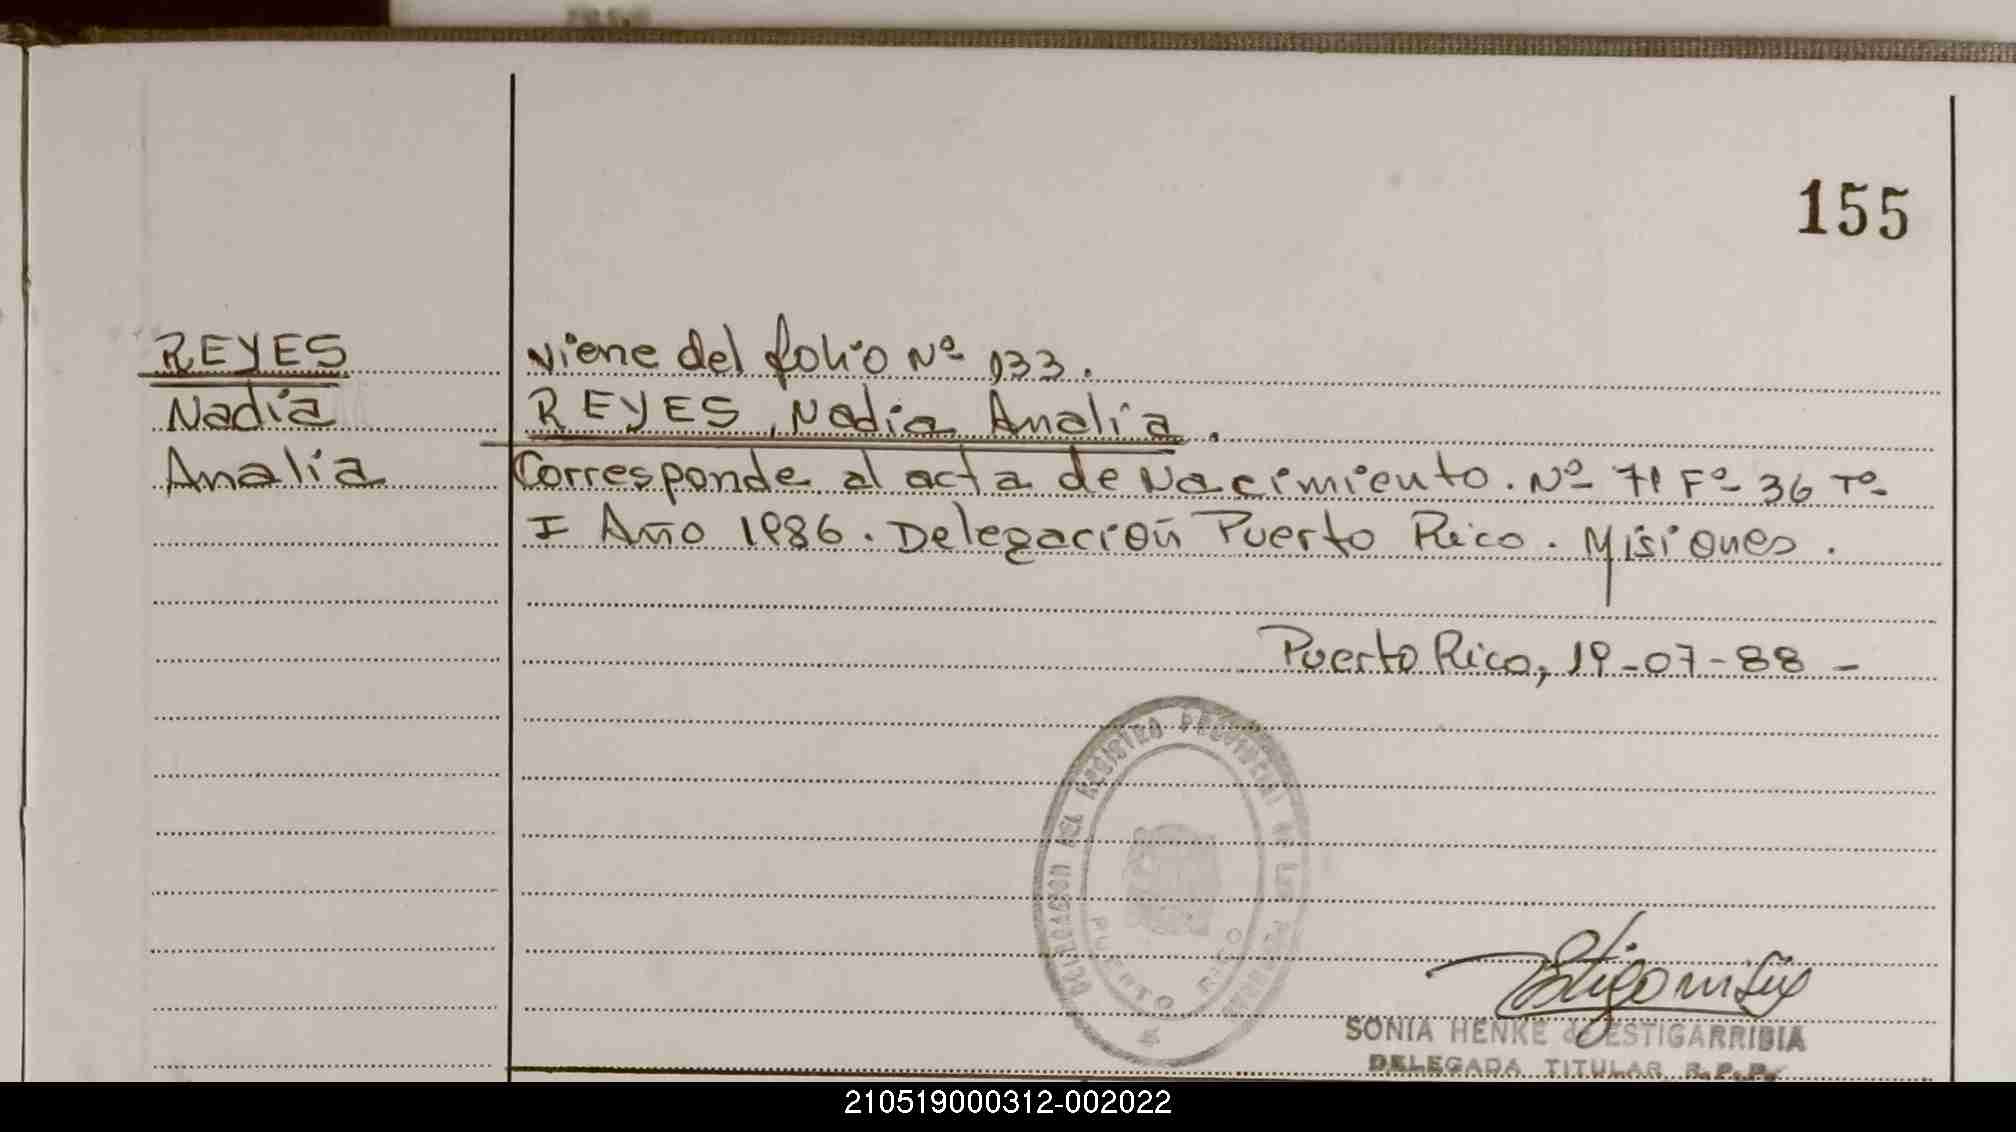 155
REYES
Nadia
Analía
Viene del folio Nº 133.
REYES, Nadia Analía.
Corresponde al acta de Nacimiento. Nº 71 Fº 36 Tº
I Año 1986. Delegación Puerto Rico. Misiones.
Puerto Rico, 19-07-88 -
DELEGACION DEL REGISTRO PROVINCIAL DE LAS PERSONAS
PUERTO RICO
SONIA HENKE de ESTIGARRIBIA
DELEGADA TITULAR R.P.P.
210519000312-002022